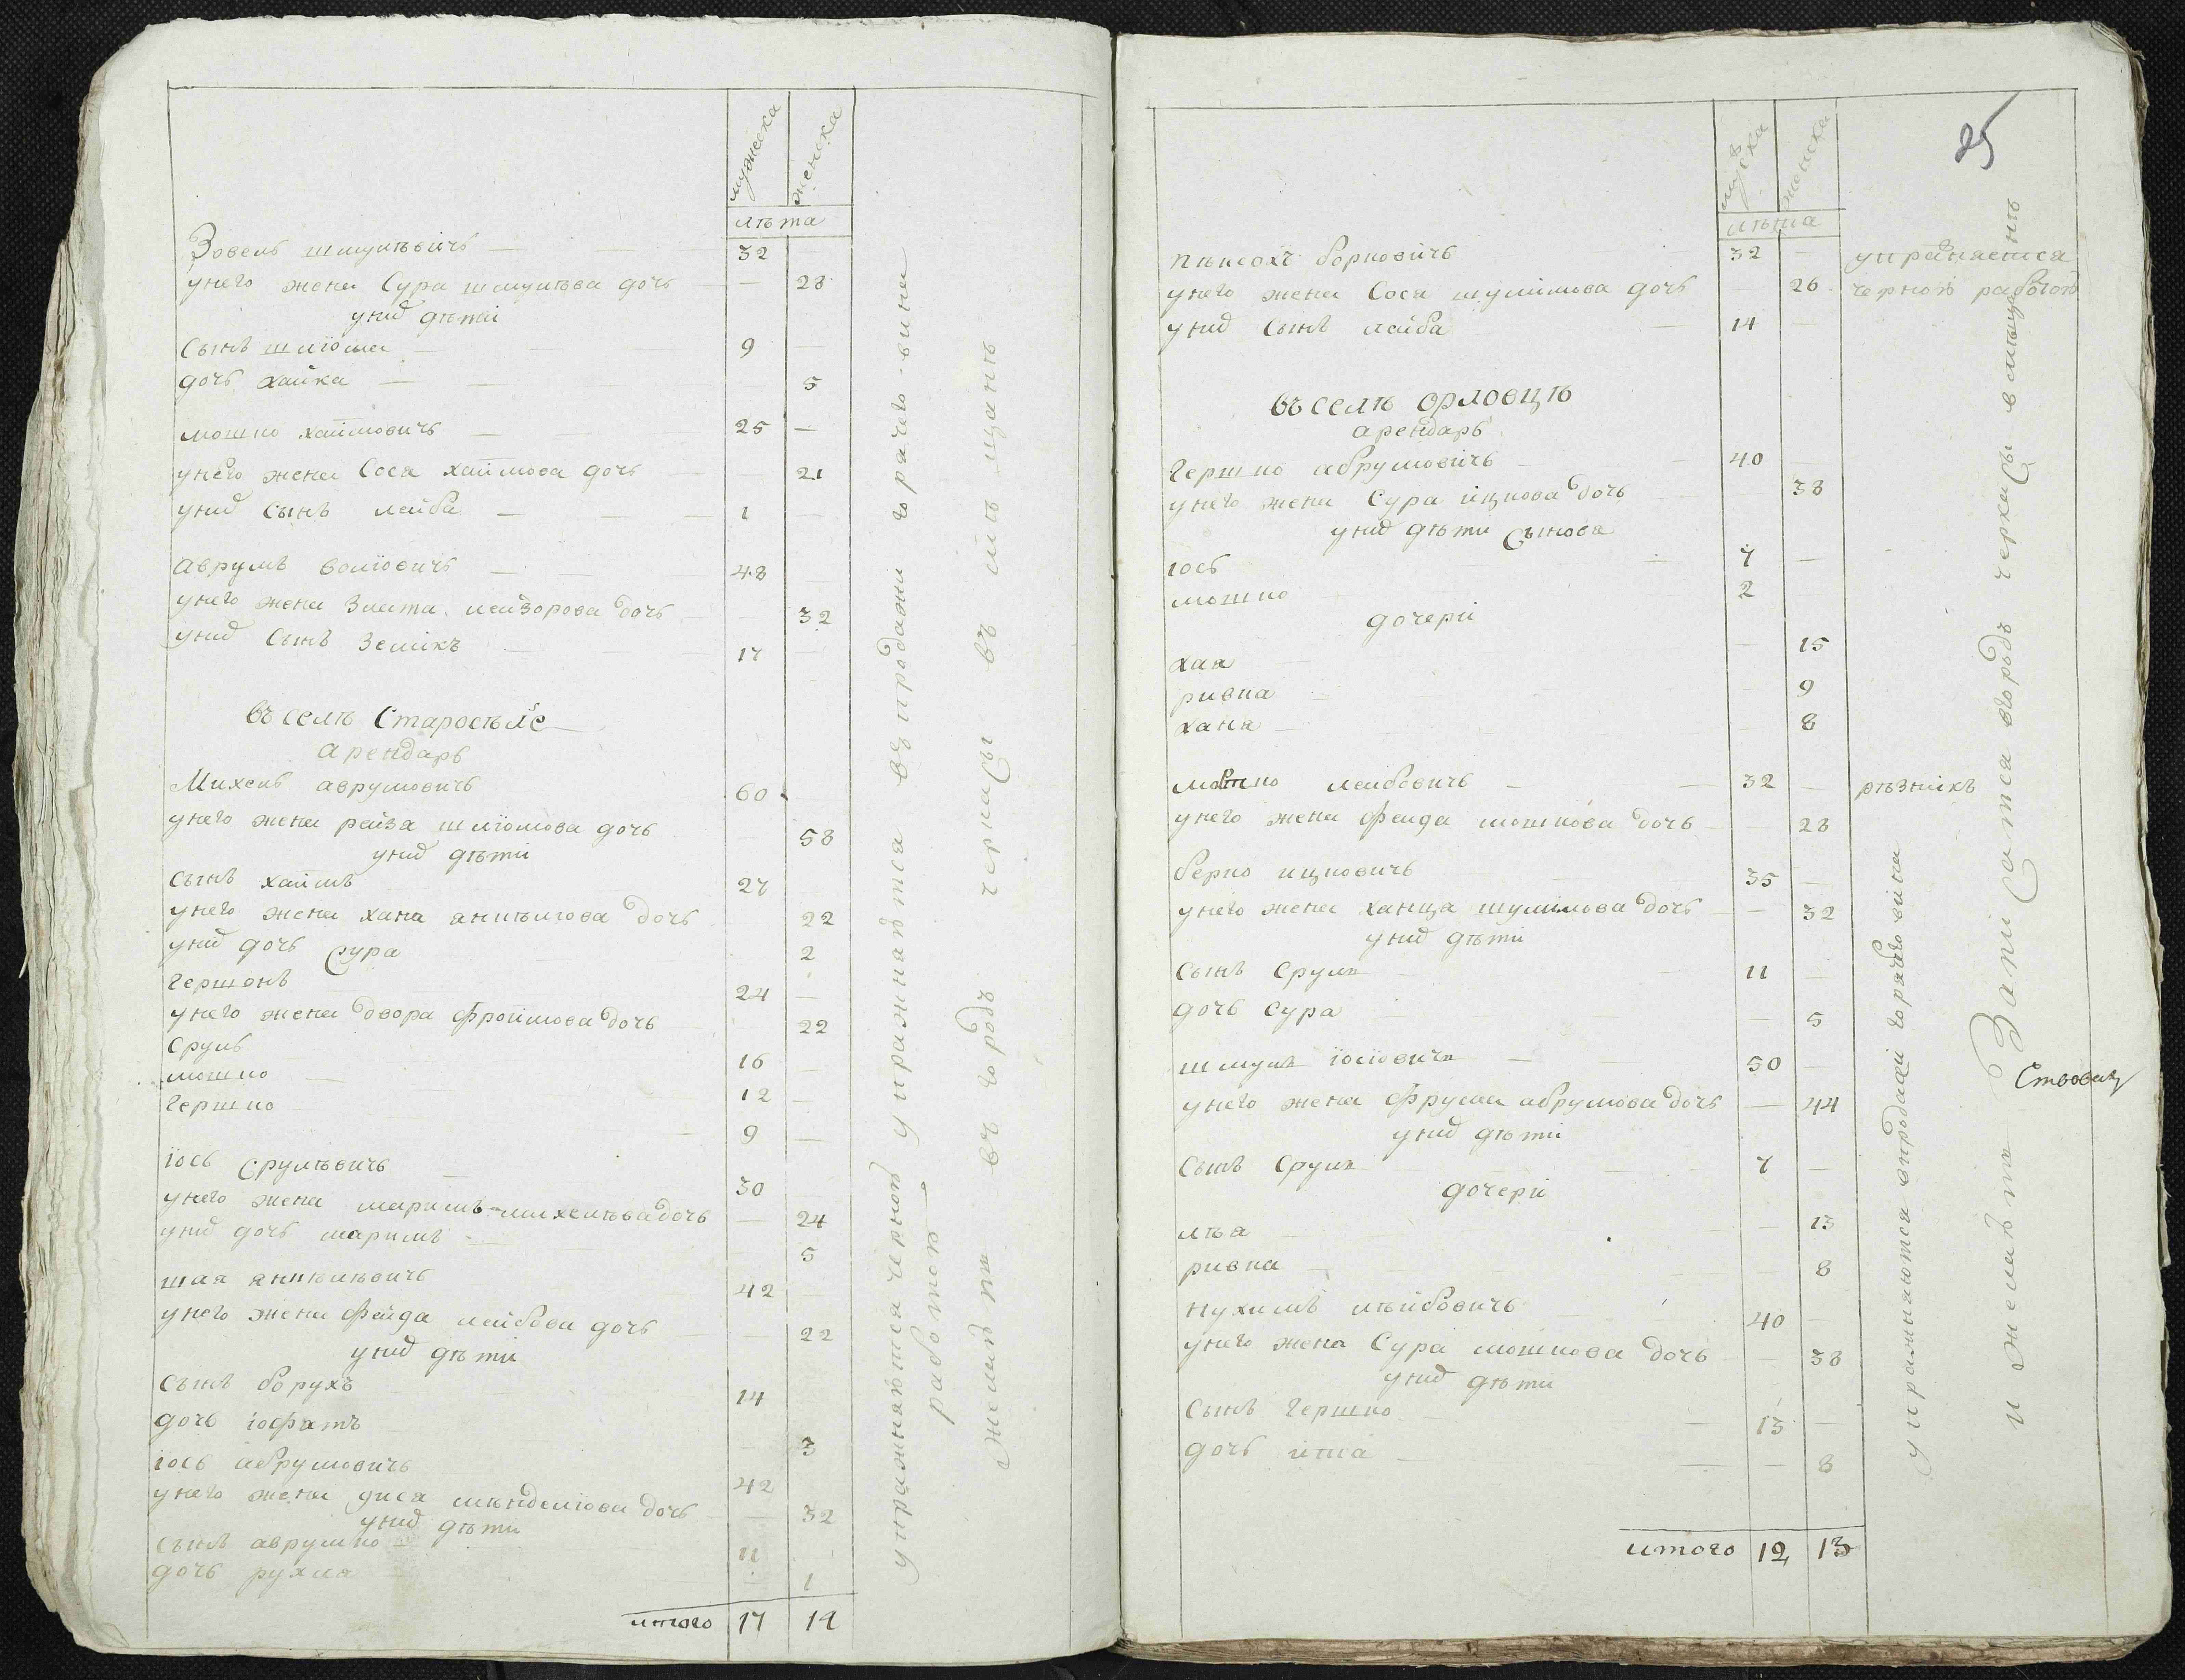 мужеска женска
лѣта
Зовель шмулѣвичъ 32
унего жена Сура шмулѣва дочь 28
унид дѣти
сынъ шлïома 9
дочь хайка 5
мошко хаймовичъ 25
унего жена Сося хаймова дочь 21
унид сынъ лейба 1
аврумъ волïовичъ 48
унего жена Злата лейзорова дочь 32
унид сынъ Зелікъ 17
въ селѣ Старосѣлѣ
арендарь
Михель аврумовичъ 60
унего жена райза шлïомова дочь 58
унид дѣти
сынъ хаймъ 27
унего жена хана анкелѣова дочь 22
унид дочь Сура 2
гершонъ 24
унего жена двора Фроимова дочь 22
Сруль 16
мошко 12
гершко 9
ïось Срулѣвичъ 30
унего жена маримъ михелѣва дочь 24
унид дочь маримъ 5
шая янкелѣвичъ 42
унего жена Фейда лейбова дочь 22
унид дѣти
сынъ борухъ 14
дочь 3
ïось абрумовичъ 42
унего жена дися менделïова дочь 32
унид дѣти
сынъ аврумко 11
дочь рухля 1
итого 17 14
упражнаютса вы продажи горачего вина
упражняются черною работою
желают въ городъ черкасы въ мѣщанѣ
25
муска женска
лѣта
пейсохъ борковичъ 32 упражняется
унего жена Сося шулимова дочь 26 черною работою
унид сынъ лейба 14
въ селѣ орловцѣ
арендарь
гершко абрумовичъ 40
унего жена Сура ицкова дочь 38
унид дѣти сынова
ïось 7
мошко 2
дочери
хая 15
ривка 9
ханя 8
мошко лейбовичъ 32 рѣзникъ
унего жена Фейда мошкова дочь 28
берко ицковичъ 35
унего жена ханца шулимова дочь 32
унид дѣти
сынъ Сруль 11
дочь Сура 5
шмуль ïосïовичъ 50
унего жена Фрума абрумова дочь 44
унид дѣти
сынъ Сруль 7
дочери
лѣа 13
ривка 8
нухимъ лѣйбовичъ 40
унего жена Сура мошкова дочь 38
унид дѣти
сынъ гершко 13
дочь 8
итого 12 13
упражнаются впродажи горячего вина
и желают Записатса вгородъ черкасы вмѣщанѣ